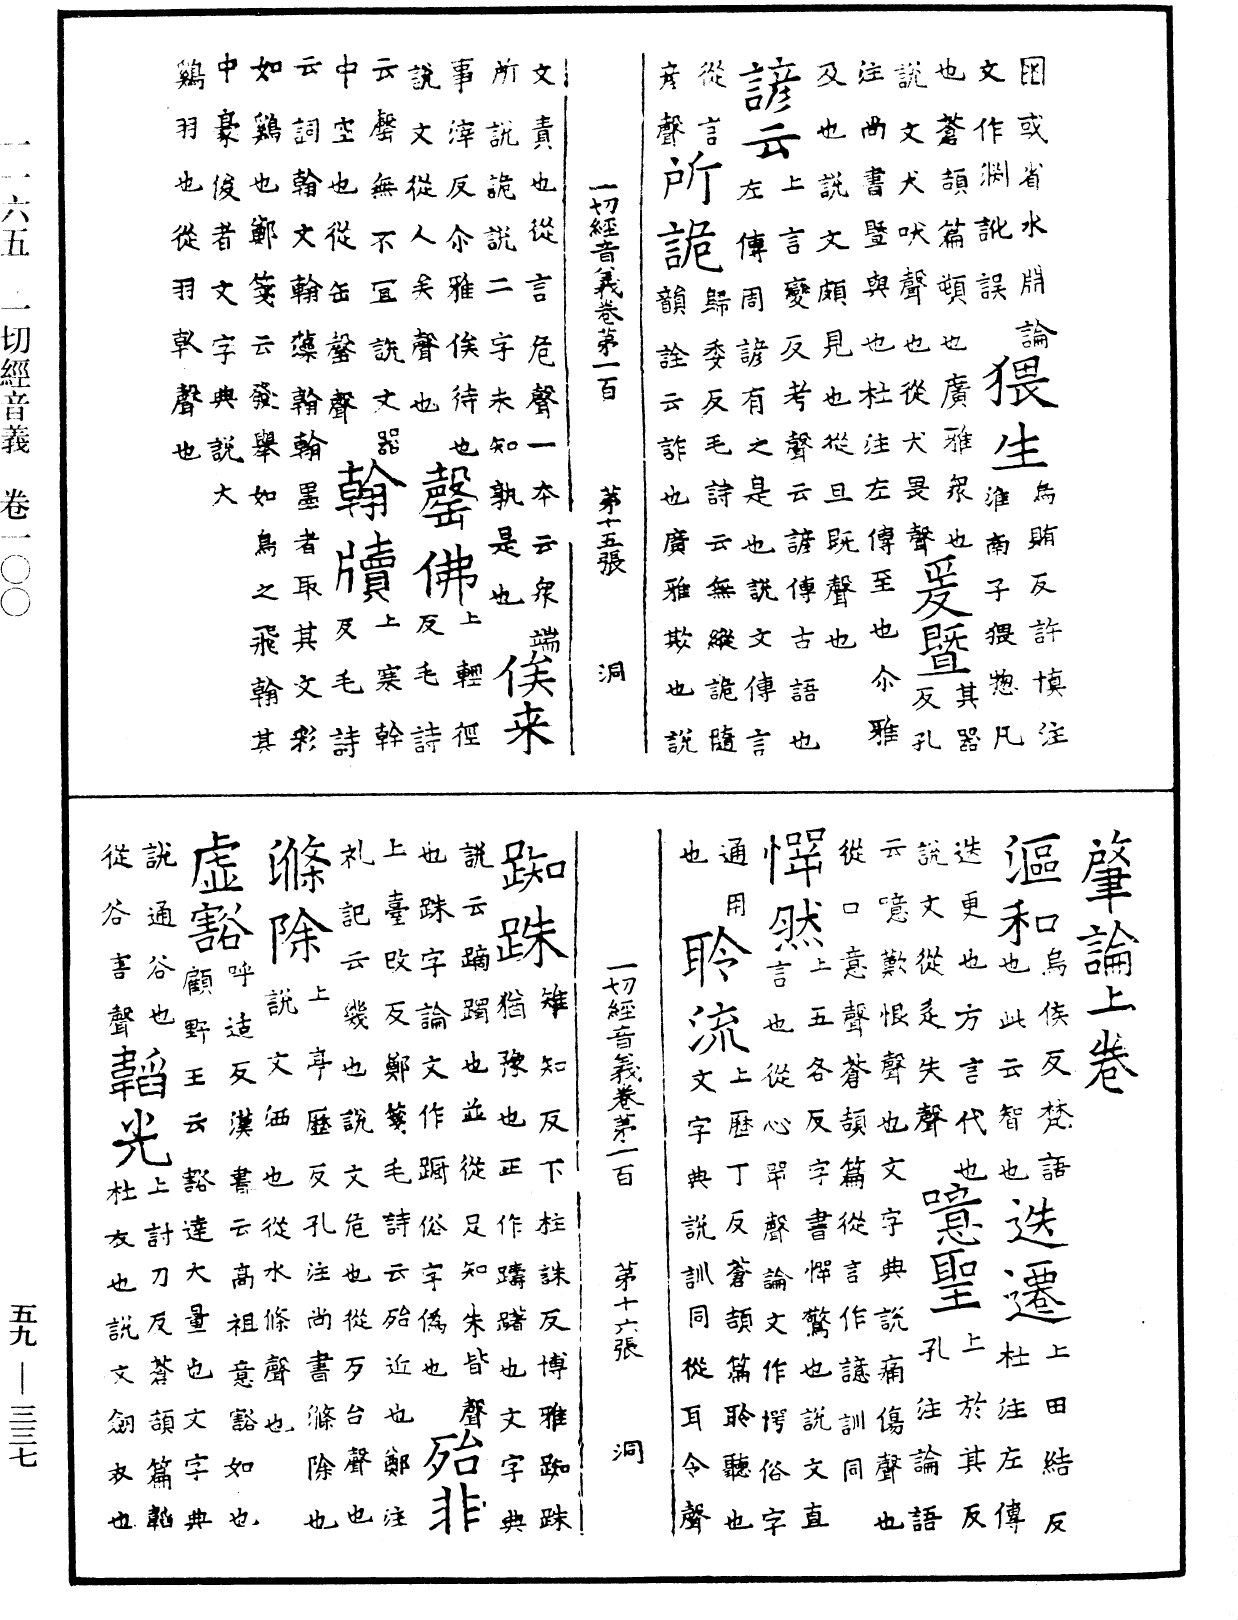 囦或省水作𣶒論
文作渊訛誤
猥生
烏賄反許慎注
淮南子猥惣凡
也蒼頡篇頓也廣雅衆也
說文犬吠聲也從犬畏聲
爰暨
其器
反孔
注尚書暨與也杜注左傳至也尒雅
及也說文頗見也從旦既聲也
諺云
上言變反考聲云諺傳古語也
左傳周諺有之是也說文傳言
從言
彦聲
所詭
歸委反毛詩云無縱詭隨
韻詮云詐也廣雅欺也說
一切經音義卷第一百 第十五張 洞
文責也從言危聲一本云衆端
所說詭說二字未知孰是也
俟来
事滓反尒雅俟待也
說文從人矣聲也
罄佛
上輕徑
反毛詩
云罄無不宜說文器
中空也從缶殸聲
翰牘
上寒幹
反毛詩
云詞翰文翰藻翰翰墨者取其文彩
如鷄也鄭箋云發舉如鳥之飛翰其
中豪俊者文字典說大
鷄羽也從羽倝聲也
肇論上卷
漚和
烏侯反梵語
也此云智也
迭遷
上田結反
杜注左傳
迭更也方言代也
說文從辵失聲
噫聖
上於其反
孔注論語
云噫歎恨聲也文字典說痛傷聲也
從口意聲蒼頡篇從言作譩訓同
憚然
上五各反字書憚驚也說文直
言也從心單聲論文作愕俗字
通用
也
聆流
上歷丁反蒼頡篇聆聽也
文字典說訓同從耳令聲
一切經音義卷第一百 第十六張 洞
踟跦
雉知反下柱誅反博雅踟跦
猶豫也正作躊躇也文字典
說云蹢躅也並從足知朱皆聲
也跦字論文作蹰俗字僞也
殆非
上臺改反鄭箋毛詩云殆近也鄭注
礼記云幾也說文危也從歹台聲也
滌除
上亭歷反孔注尚書滌除也
說文洒也從水條聲也
虚豁
呼适反漢書云高祖意豁如也
顧野王云豁達大量也文字典
說通谷也
從谷害聲
韜光
上討刀反蒼頡篇韜
杜衣也說文劒衣也
一一六五 一切經音義 卷一〇〇
五九—三三七